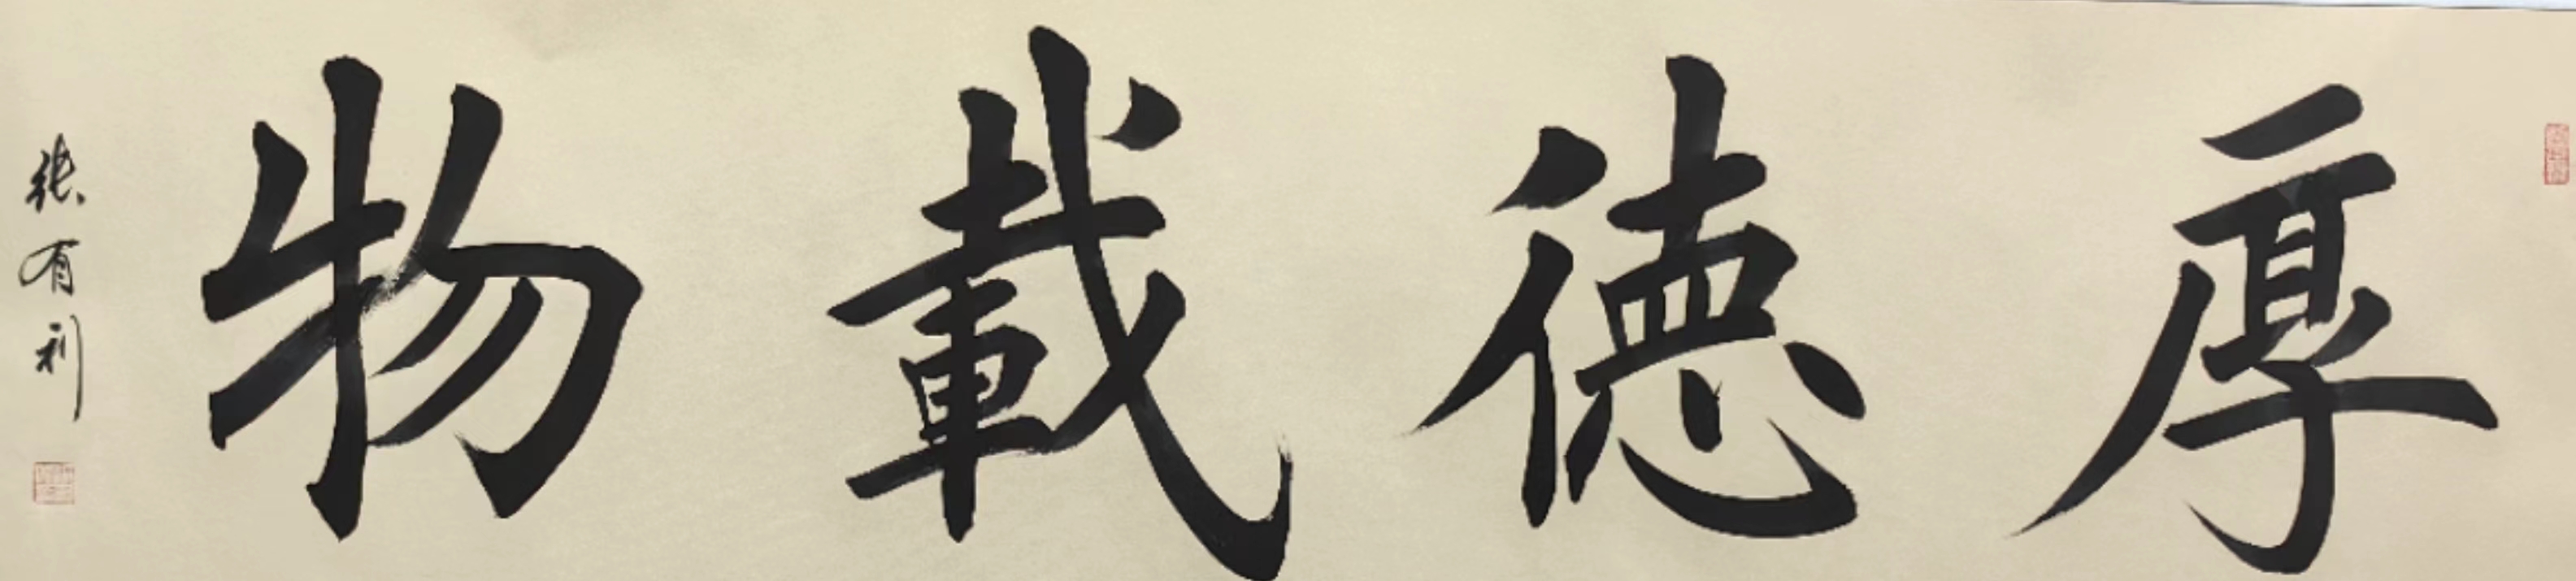 厚德載物
張有利